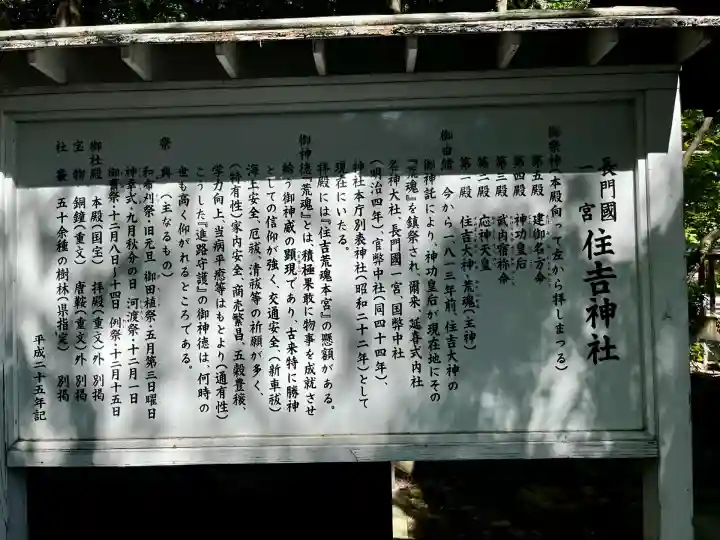 長門國
一宮 住吉神社
御祭神(本殿向って左から拝しまつる)
第五殿 建御名方命
第四殿 神功皇后
第三殿 武内宿祢命
第二殿 応神天皇
第一殿 住吉大神・荒魂(主神)
御由緒 今から一八一三年前、住吉大神の
御神託により、神功皇后が現在地にその
『荒魂』を鎮祭され、爾来、延喜式内社
名神大社、長門國一宮、国幣中社
(明治四年)、官幣中社(同四十四年)、
神社本庁別表神社(昭和二十二年)として
現在にいたる。
拝殿には『住吉荒魂本宮』の懸額がある。
御神徳『荒魂』とは、積極果敢に物事を成就させ
給う御神威の顕現であり、古来特に勝神
としての信仰が強く、交通安全、(新車祓)
海上安全、厄祓、清祓等の祈願が多く、
(特有性)家内安全、商売繁昌、五穀豊穣、
学力向上、当病平癒等はもとより(通有性)
こうした『進路守護』の御神徳は、何時の
世も高く仰がれるところである。
祭典(主なるもの)
和布刈祭・旧元旦 御田植祭・五月第三日曜日
神幸式・九月秋分の日 河渡祭・十二月一日
御斎祭・十二月八日〜十四日 例祭・十二月十五日
御社殿 本殿(国宝) 拝殿(重文)外 別掲
宝物 銅鐘(重文) 唐鞍(重文)外 別掲
社叢 五十余種の樹林(県指定) 別掲
平成二十五年記